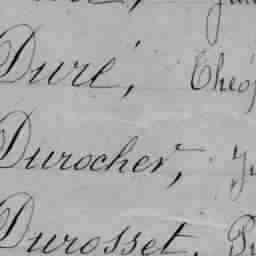 Duré, Théo
Durocher,
Durosset,